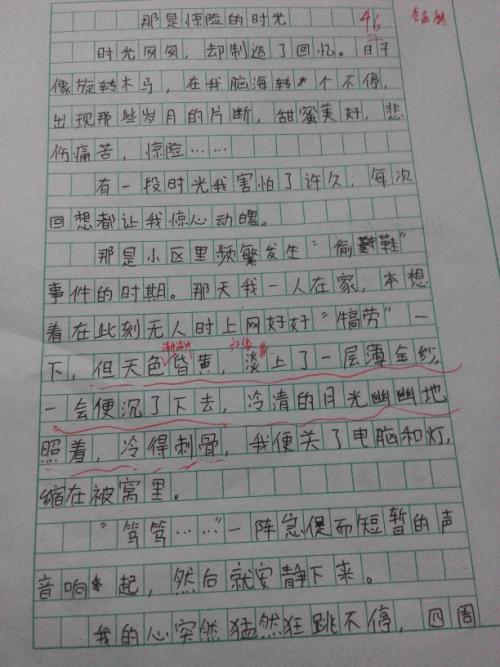 那是惊险的时光
46
时光匆匆,却制造了回忆。日子
像旋转木马,在我脑海转个不停,
出现那些岁月的片断,甜蜜美好,悲
伤痛苦,惊险……
有一段时光我害怕了许久,每次
回想都让我惊心动魄。
那是小区里频繁发生“偷鞋”
事件的时期。那天我一人在家,本想
着在此刻无人时上网好好“犒劳”一
下,但天色昏黄,淡上了一层薄金纱,
一会便沉了下去,冷清的月光幽幽地
照着,冷得刺骨,我便关了电脑和灯,
缩在被窝里。
“笃笃……”一阵急促而短暂的声
音响起,然后就安静下来。
我的心突然猛然狂跳不停,四周